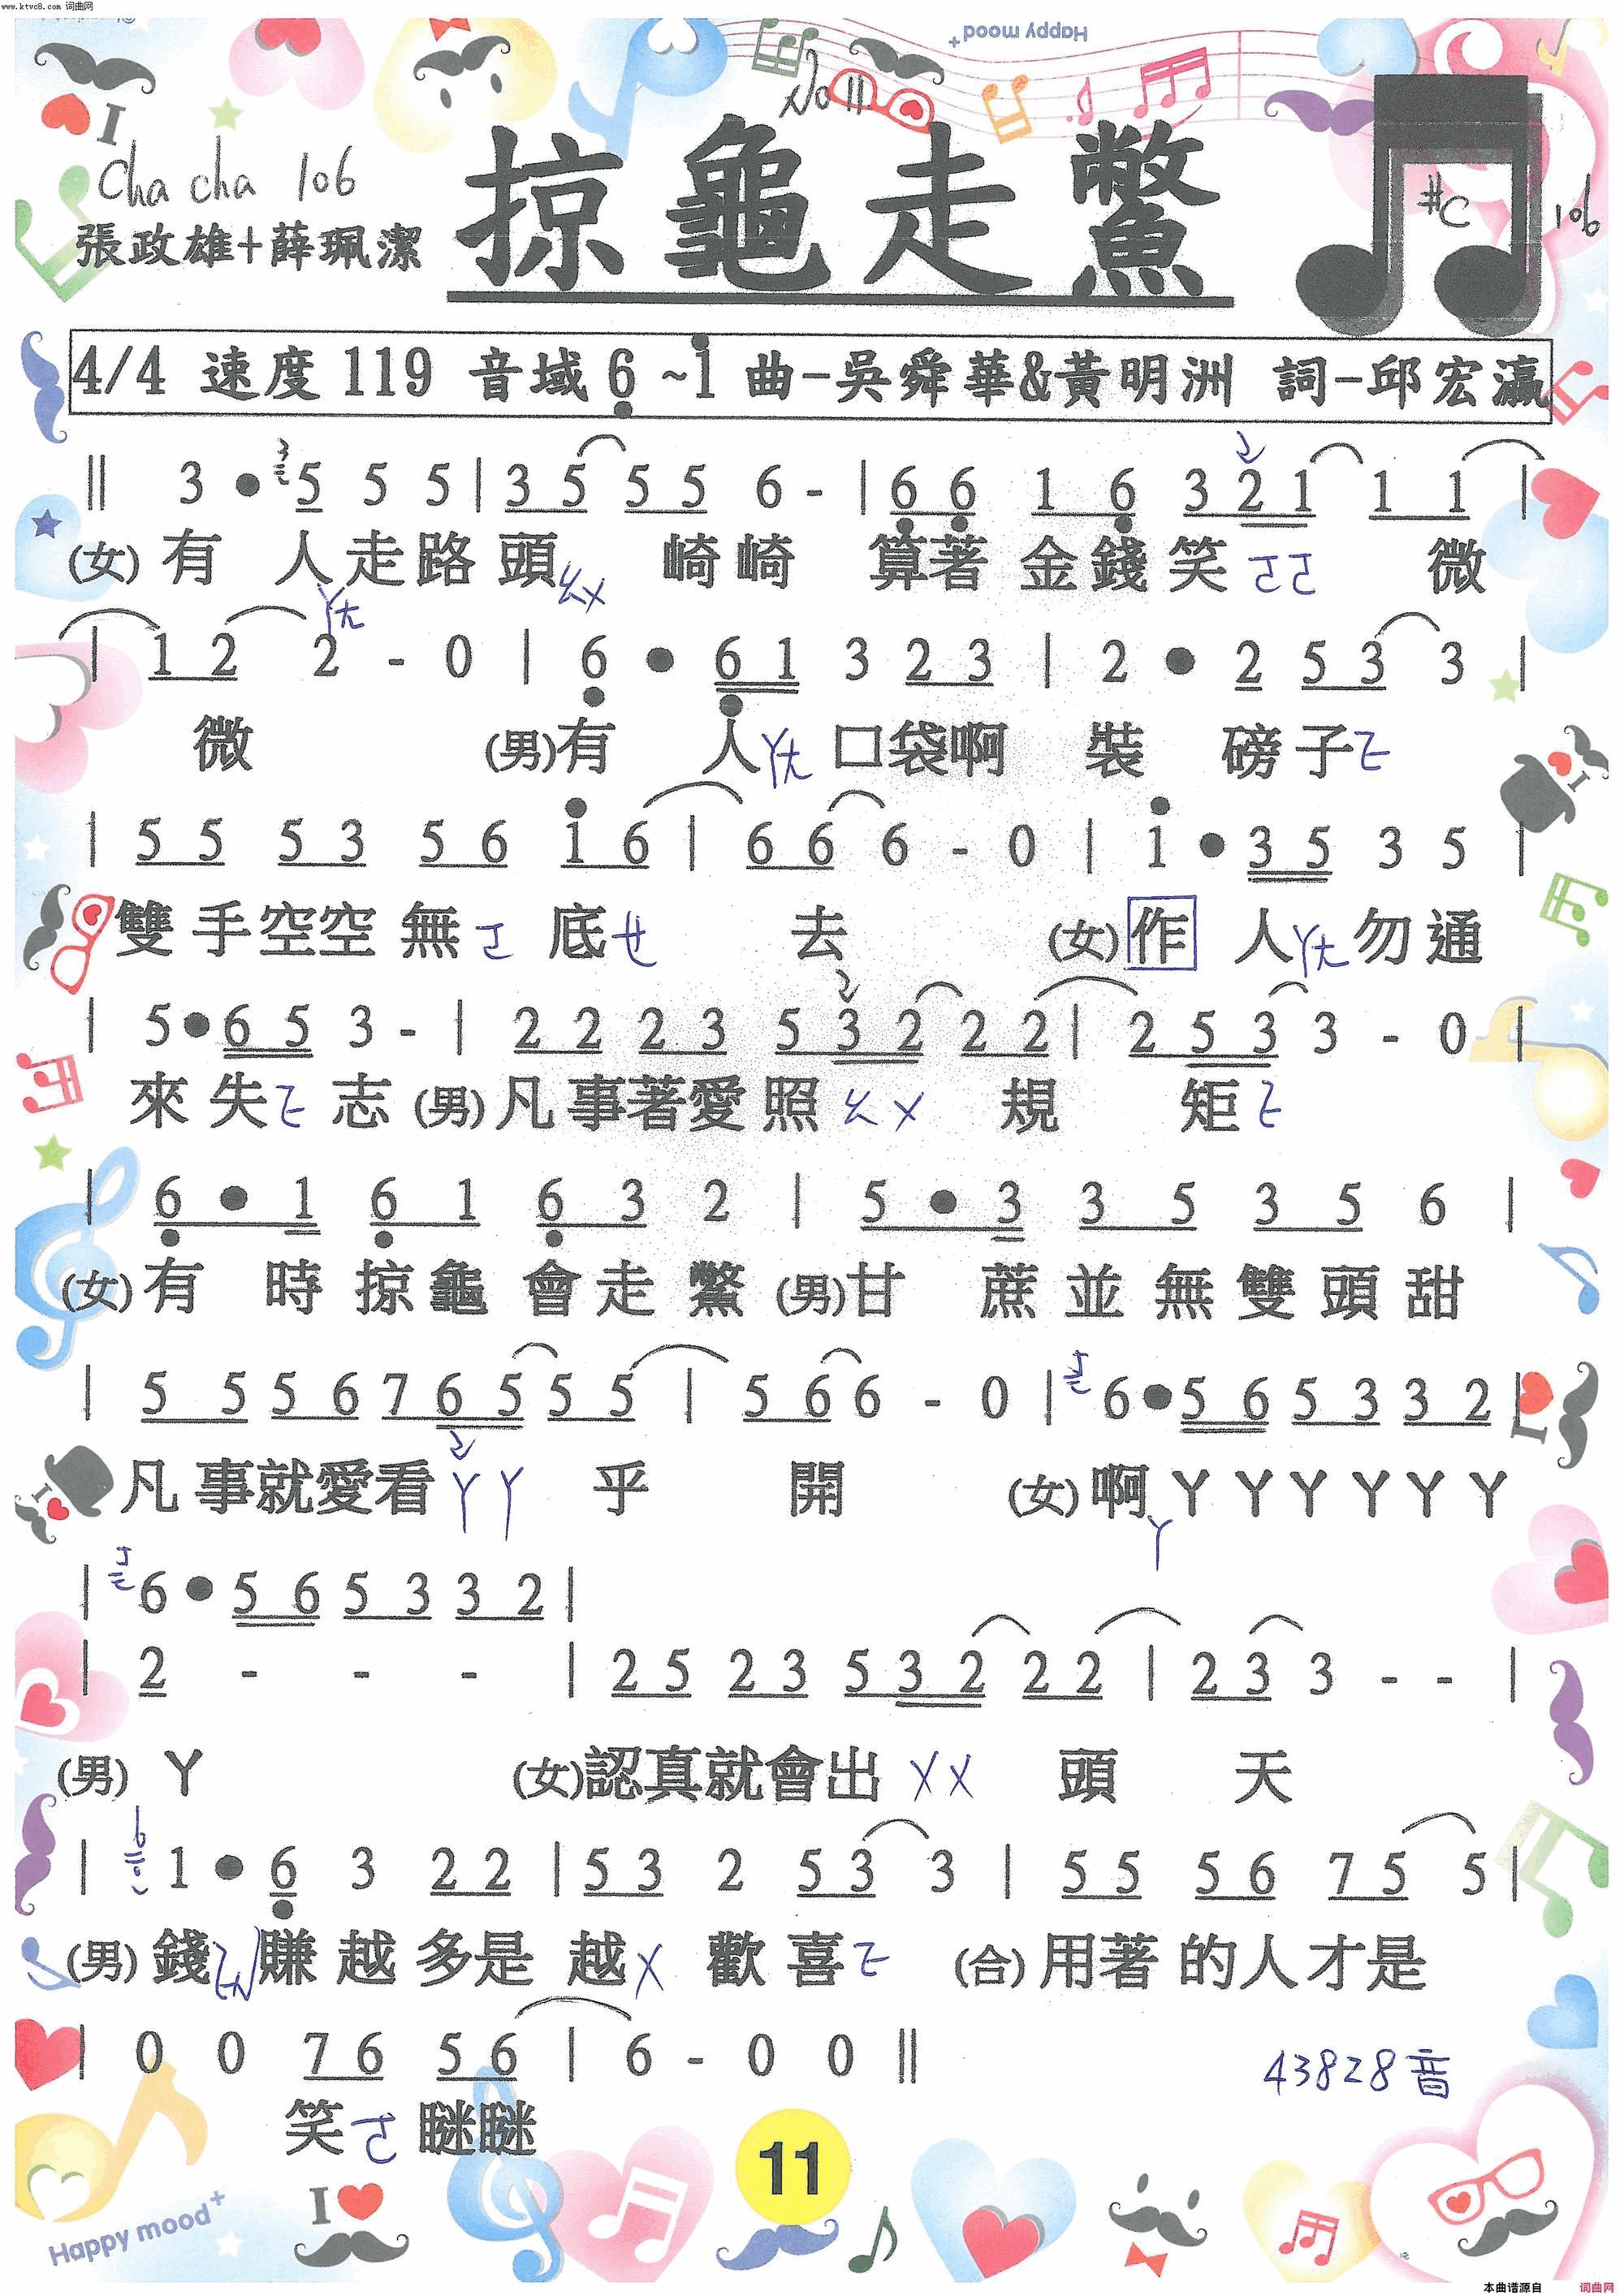 www.ktvc8.com 词曲网
Happy mood+
No 11
I
Cha cha 106
張政雄+薛珮潔
掠龜走鱉
#C 106
4/4 速度 119 音域 6 ~1 曲-吳舜華&黃明洲 詞-邱宏瀛
‖ 3 • 5 5 5 | 3 5 5 5 6 - | 6 6 1 6 3 2 1 1 1 |
(女) 有 人ㄚㄤ走路頭ㄠㄨ 崎崎 算著金錢笑ㄜㄜ 微
| 1 2 2 - 0 | 6 • 6 1 3 2 3 | 2 • 2 5 3 3 |
微 (男)有 人ㄚㄤ口袋啊 裝 磅子ㄛ
| 5 5 5 3 5 6 1 6 | 6 6 6 - 0 | 1 • 3 5 3 5 |
雙手空空無ㄜ 底ㄝ 去 (女)作 人ㄚㄤ勿通
| 5 • 6 5 3 - | 2 2 2 3 5 3 2 2 2 | 2 5 3 3 - 0 |
來失ㄛ志(男)凡事著愛照ㄠㄨ 規 矩ㄛ
| 6 • 1 6 1 6 3 2 | 5 • 3 3 5 3 5 6 |
(女)有 時掠龜會走鱉(男)甘 蔗並無雙頭甜
| 5 5 5 6 7 6 5 5 5 | 5 6 6 - 0 | 6 • 5 6 5 3 3 2 |
凡事就愛看ㄚㄚ 乎 開 (女)啊ㄚㄚㄚㄚㄚㄚ
ㄚ
| 6 • 5 6 5 3 3 2 |
| 2 - - - | 2 5 2 3 5 3 2 2 2 | 2 3 3 - - |
(男) ㄚ (女)認真就會出ㄨㄨ 頭 天
| 1 • 6 3 2 2 | 5 3 2 5 3 3 | 5 5 5 6 7 5 5 |
(男)錢 賺越多是越ㄨ 歡喜ㄛ (合)用著的人才是
| 0 0 7 6 5 6 | 6 - 0 0 ‖
43828音
笑ㄜ 瞇瞇
11
I
Happy mood+
本曲谱源自 词曲网